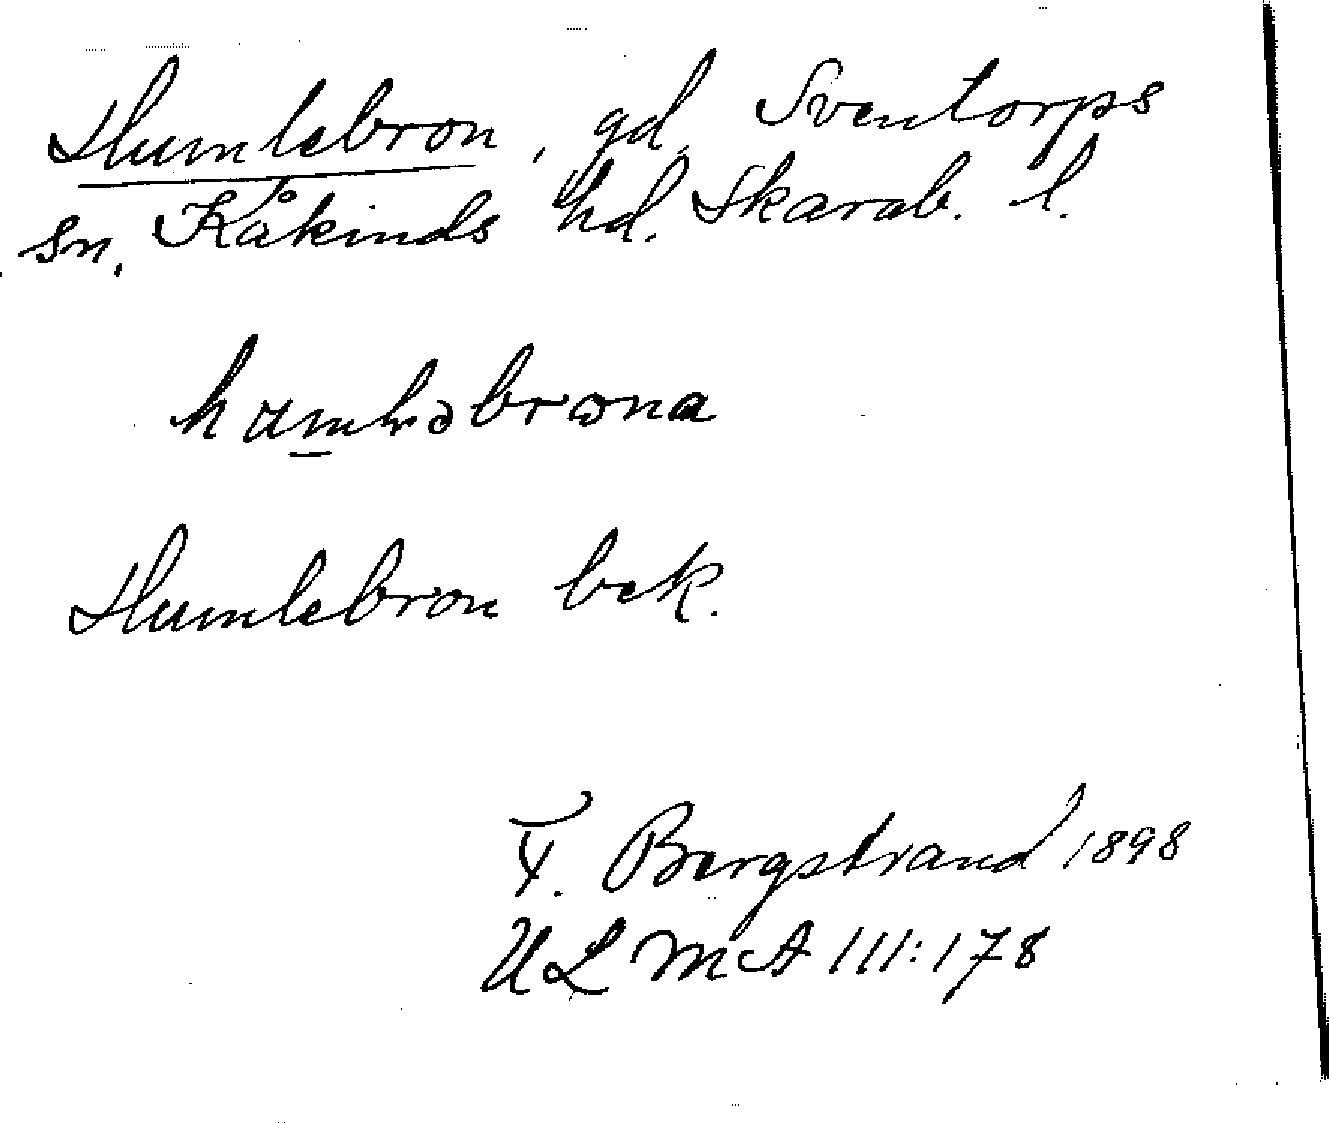 Humlebron, gd, Sventorps
sn, Kåkinds hd. Skarab. l.
humləbrona
Humlebron bek.
F. Bergstrand 1898
ULMA 111:178